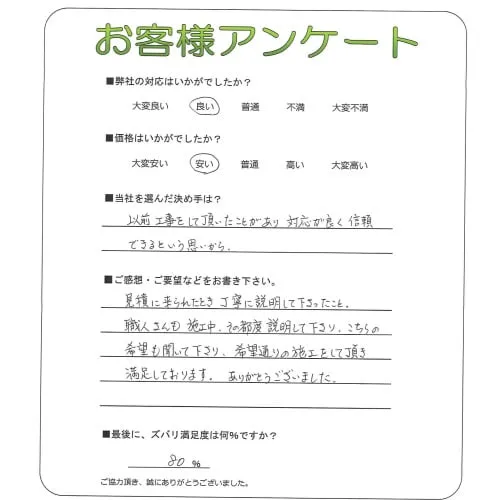 お客様アンケート
■弊社の対応はいかがでしたか?
大変良い 良い 普通 不満 大変不満
■価格はいかがでしたか?
大変安い 安い 普通 高い 大変高い
■当社を選んだ決め手は?
以前工事をして頂いたことがあり 対応が良く信頼
できるという思いから.
■ご感想・ご要望などをお書き下さい。
見積に来られたとき 丁寧に説明して下さったこと.
職人さんも 施工中、その都度説明して下り、こちらの
希望も聞いて下り、希望通りの施工をして頂き
満足しております. ありがとうございました.
■最後に、ズバリ満足度は何%ですか?
80 %
ご協力頂き、誠にありがとうございました。